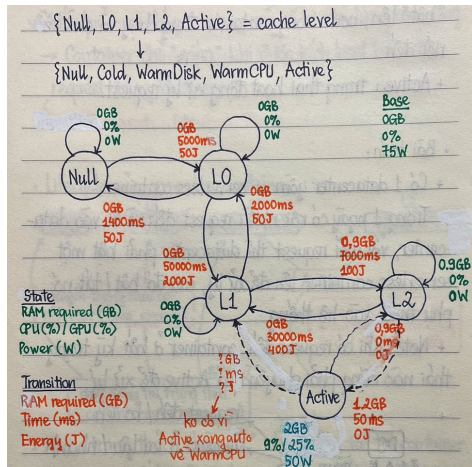 {Null, L0, L1, L2, Active} = cache level
{Null, Cold, WarmDisk, WarmCPU, Active}
0GB
0%
0W
0GB
0%
0W
Base
0GB
0%
75W
0GB
5000ms
50J
Null
L0
0GB
1400ms
50J
0GB
2000ms
50J
0GB
50000ms
2000J
0,9GB
7000ms
100J
0.9GB
0%
0W
State
RAM required (GB)
CPU(%)/GPU(%)
Power (W)
0GB
0%
0W
L1
L2
0GB
30000ms
400J
0,9GB
0ms
0J
Transition
RAM required (GB)
Time (ms)
Energy (J)
?GB
?ms
?J
Active
1.2GB
50ms
0J
ko có vì
Active xong auto
về WarmCPU
2GB
9%/25%
50W